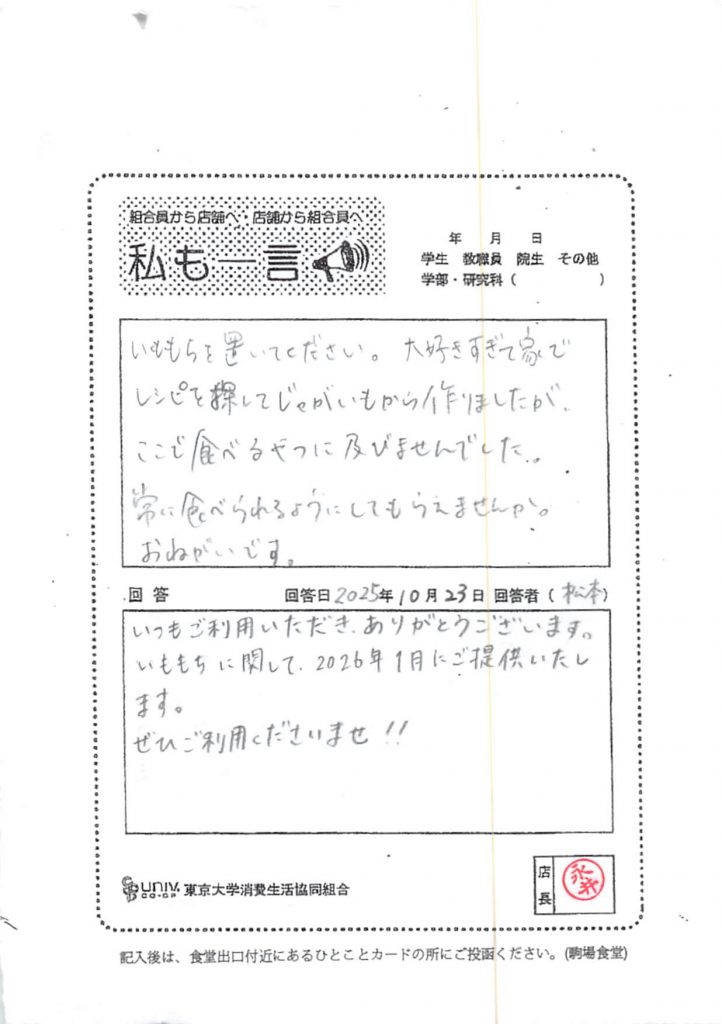 組合員から店舗へ・店舗から組合員へ
私も一言
年 月 日
学生 教職員 院生 その他
学部・研究科( )
いももちを置いてください。大好きすぎて家で
レシピを探してじゃがいもから作りましたが、
ここで食べるやつに及びませんでした。
常に食べられるようにしてもらえませんか。
おねがいです。
回答 回答日2025年10月23日 回答者(松本)
いつもご利用いただき、ありがとうございます。
いももちに関して、2026年1月にご提供いたし
ます。
ぜひご利用くださいませ!!
UNIV.
CO-OP
東京大学消費生活協同組合
店長
記入後は、食堂出口付近にあるひとことカードの所にご投函ください。(駒場食堂)